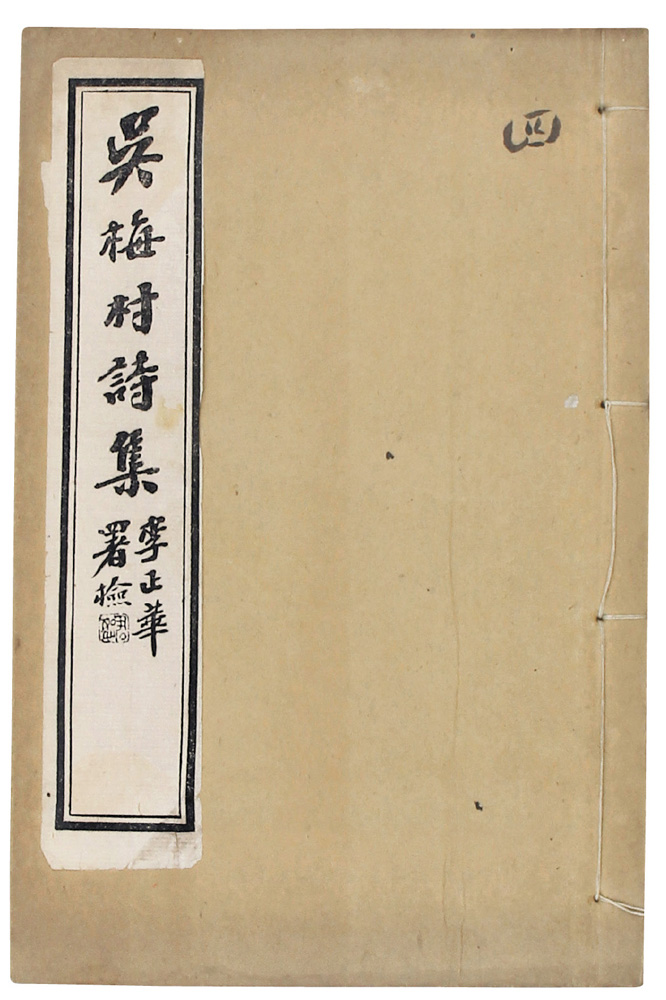 四
吳梅村詩集
李正華
署檢